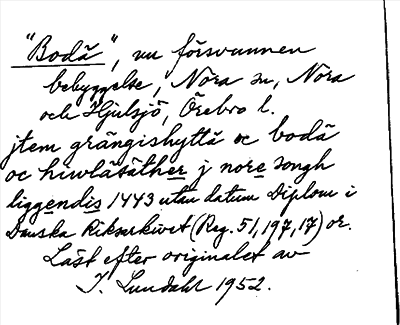 "Bodă", nu försvunnen
bebyggelse, Nora sn, Nora
och Hjulsjö, Örebro l.
jtem grängishyttă oc bodă
oc hiwlăsăther j nore songh
liggendis 1443 utan datum Diplom i
Danska Riksarkivet (Reg. 51, 197, 17) or.
Läst efter originalet av
I. Lundahl 1952.